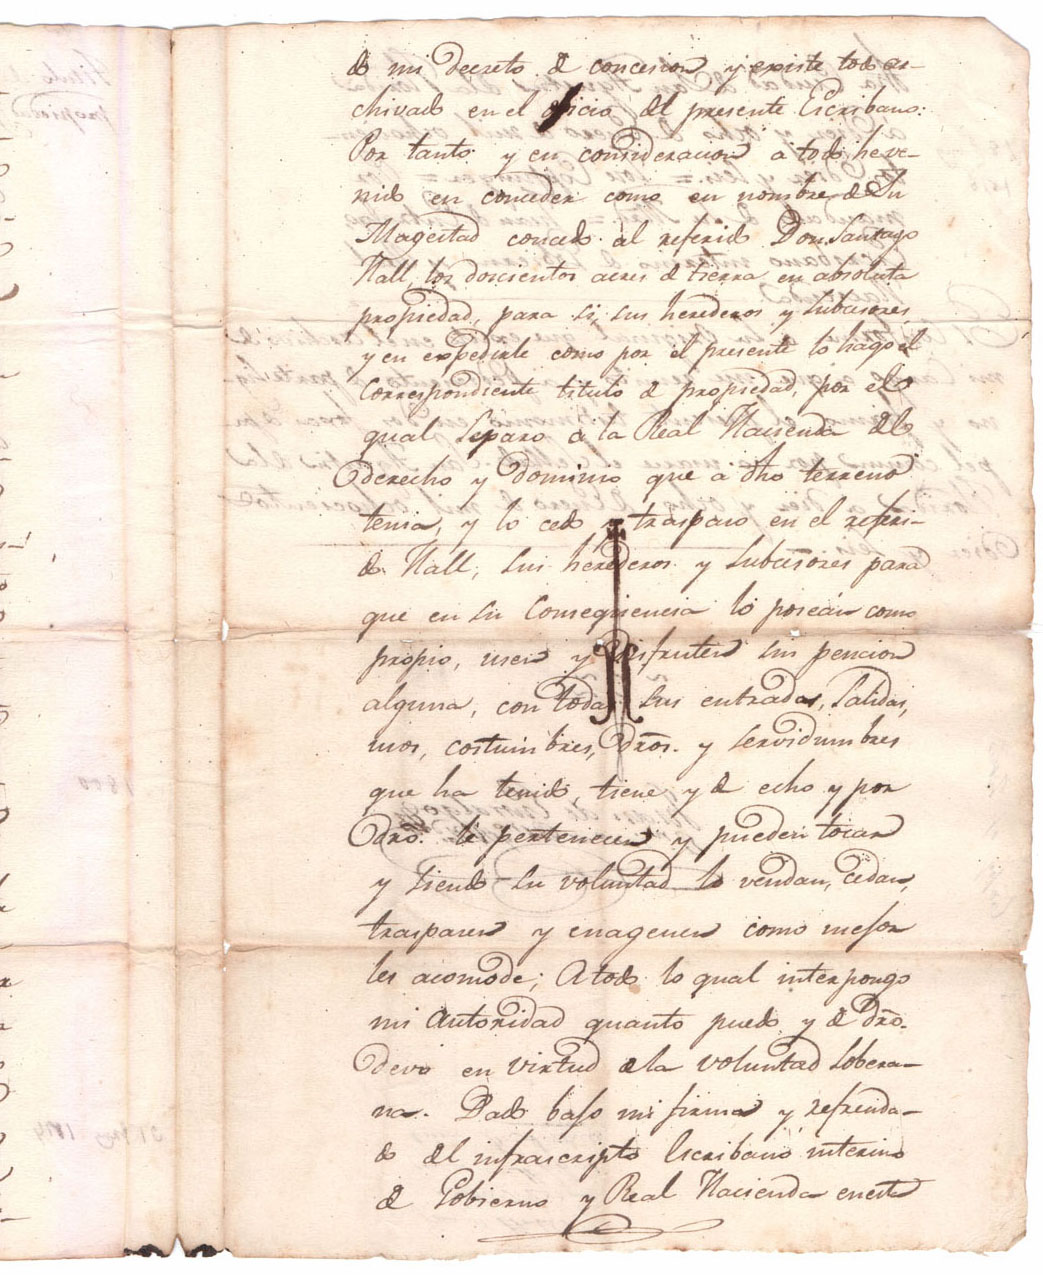 de mi decreto de concesion y existe todo ar-
chivado en el oficio del presente Escribano:
Por tanto y en consideracion a todo he ve-
nido en conceder como en nombre de Su
Magestad concedo al referido Don Santiago
Hall, los doscientos acres de tierra en absoluta
propiedad, para si, sus herederos y subcesores
y en expedirle como por el presente lo hago el
correspondiente titulo de propiedad, por el
qual separo a la Real Hacienda del
derecho y dominio que a dho terreno
tenia, y lo cedo y traspaso en el referi-
do Hall, sus herederos y subcesores para
que en su conseqüencia lo posean como
propio, usen y disfruten sin pencion
alguna, con todas sus entradas, salidas,
usos, costumbres, dros. y servidumbres
que ha tenido, tiene y de echo y por
dro. le pertenecen y pueden tocar
y siendo su voluntad lo vendan, cedan,
traspasen y enagenen como mejor
les acomode; A todo lo qual interpongo
mi Autoridad quanto puedo y de dro.
devo en virtud de la voluntad sobera-
na. Dado bajo mi firma y refrenda-
do del infrascripto Escribano interino
de Gobierno y Real Hacienda en esta